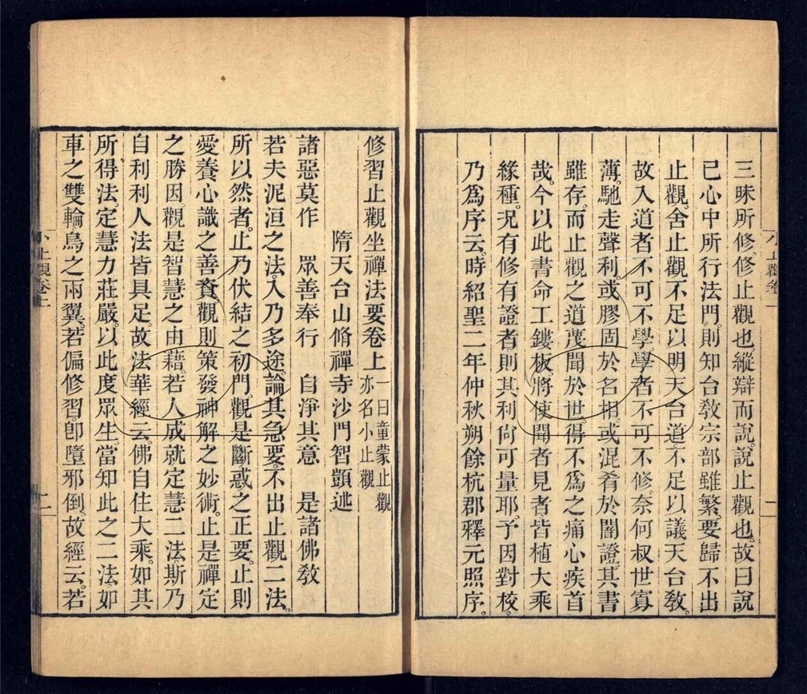 三昧所修修止觀也縱辯而說說止觀也故曰說
己心中所行法門則知台敎宗部雖繁要歸不出
止觀舍止觀不足以明天台道不足以議天台敎
故入道者不可不學學者不可不修奈何叔世寡
薄馳走聲利或膠固於名相或混肴於闇證其書
雖存而止觀之道蔑聞於世得不爲之痛心疾首
哉今以此書命工鏤板將使聞者見者皆植大乘
緣種況有修有證者則其利尙可量耶予因對校
乃爲序云時紹聖二年仲秋朔餘杭郡釋元照序
小止觀卷
一
修習止觀坐禪法要卷上 一曰童蒙止觀
亦名小止觀
隋天台山脩禪寺沙門智顗述
諸惡莫作 眾善奉行 自淨其意 是諸佛敎
若夫泥洹之法入乃多途論其急要不出止觀二法
所以然者止乃伏結之初門觀是斷惑之正要止則
愛養心識之善資觀則策發神解之妙術止是禪定
之勝因觀是智慧之由藉若人成就定慧二法斯乃
自利利人法皆具足故法華經云佛自住大乘如其
所得法定慧力莊嚴以此度眾生當知此之二法如
車之雙輪鳥之兩翼若偏修習卽墮邪倒故經云若
小止觀卷上
二